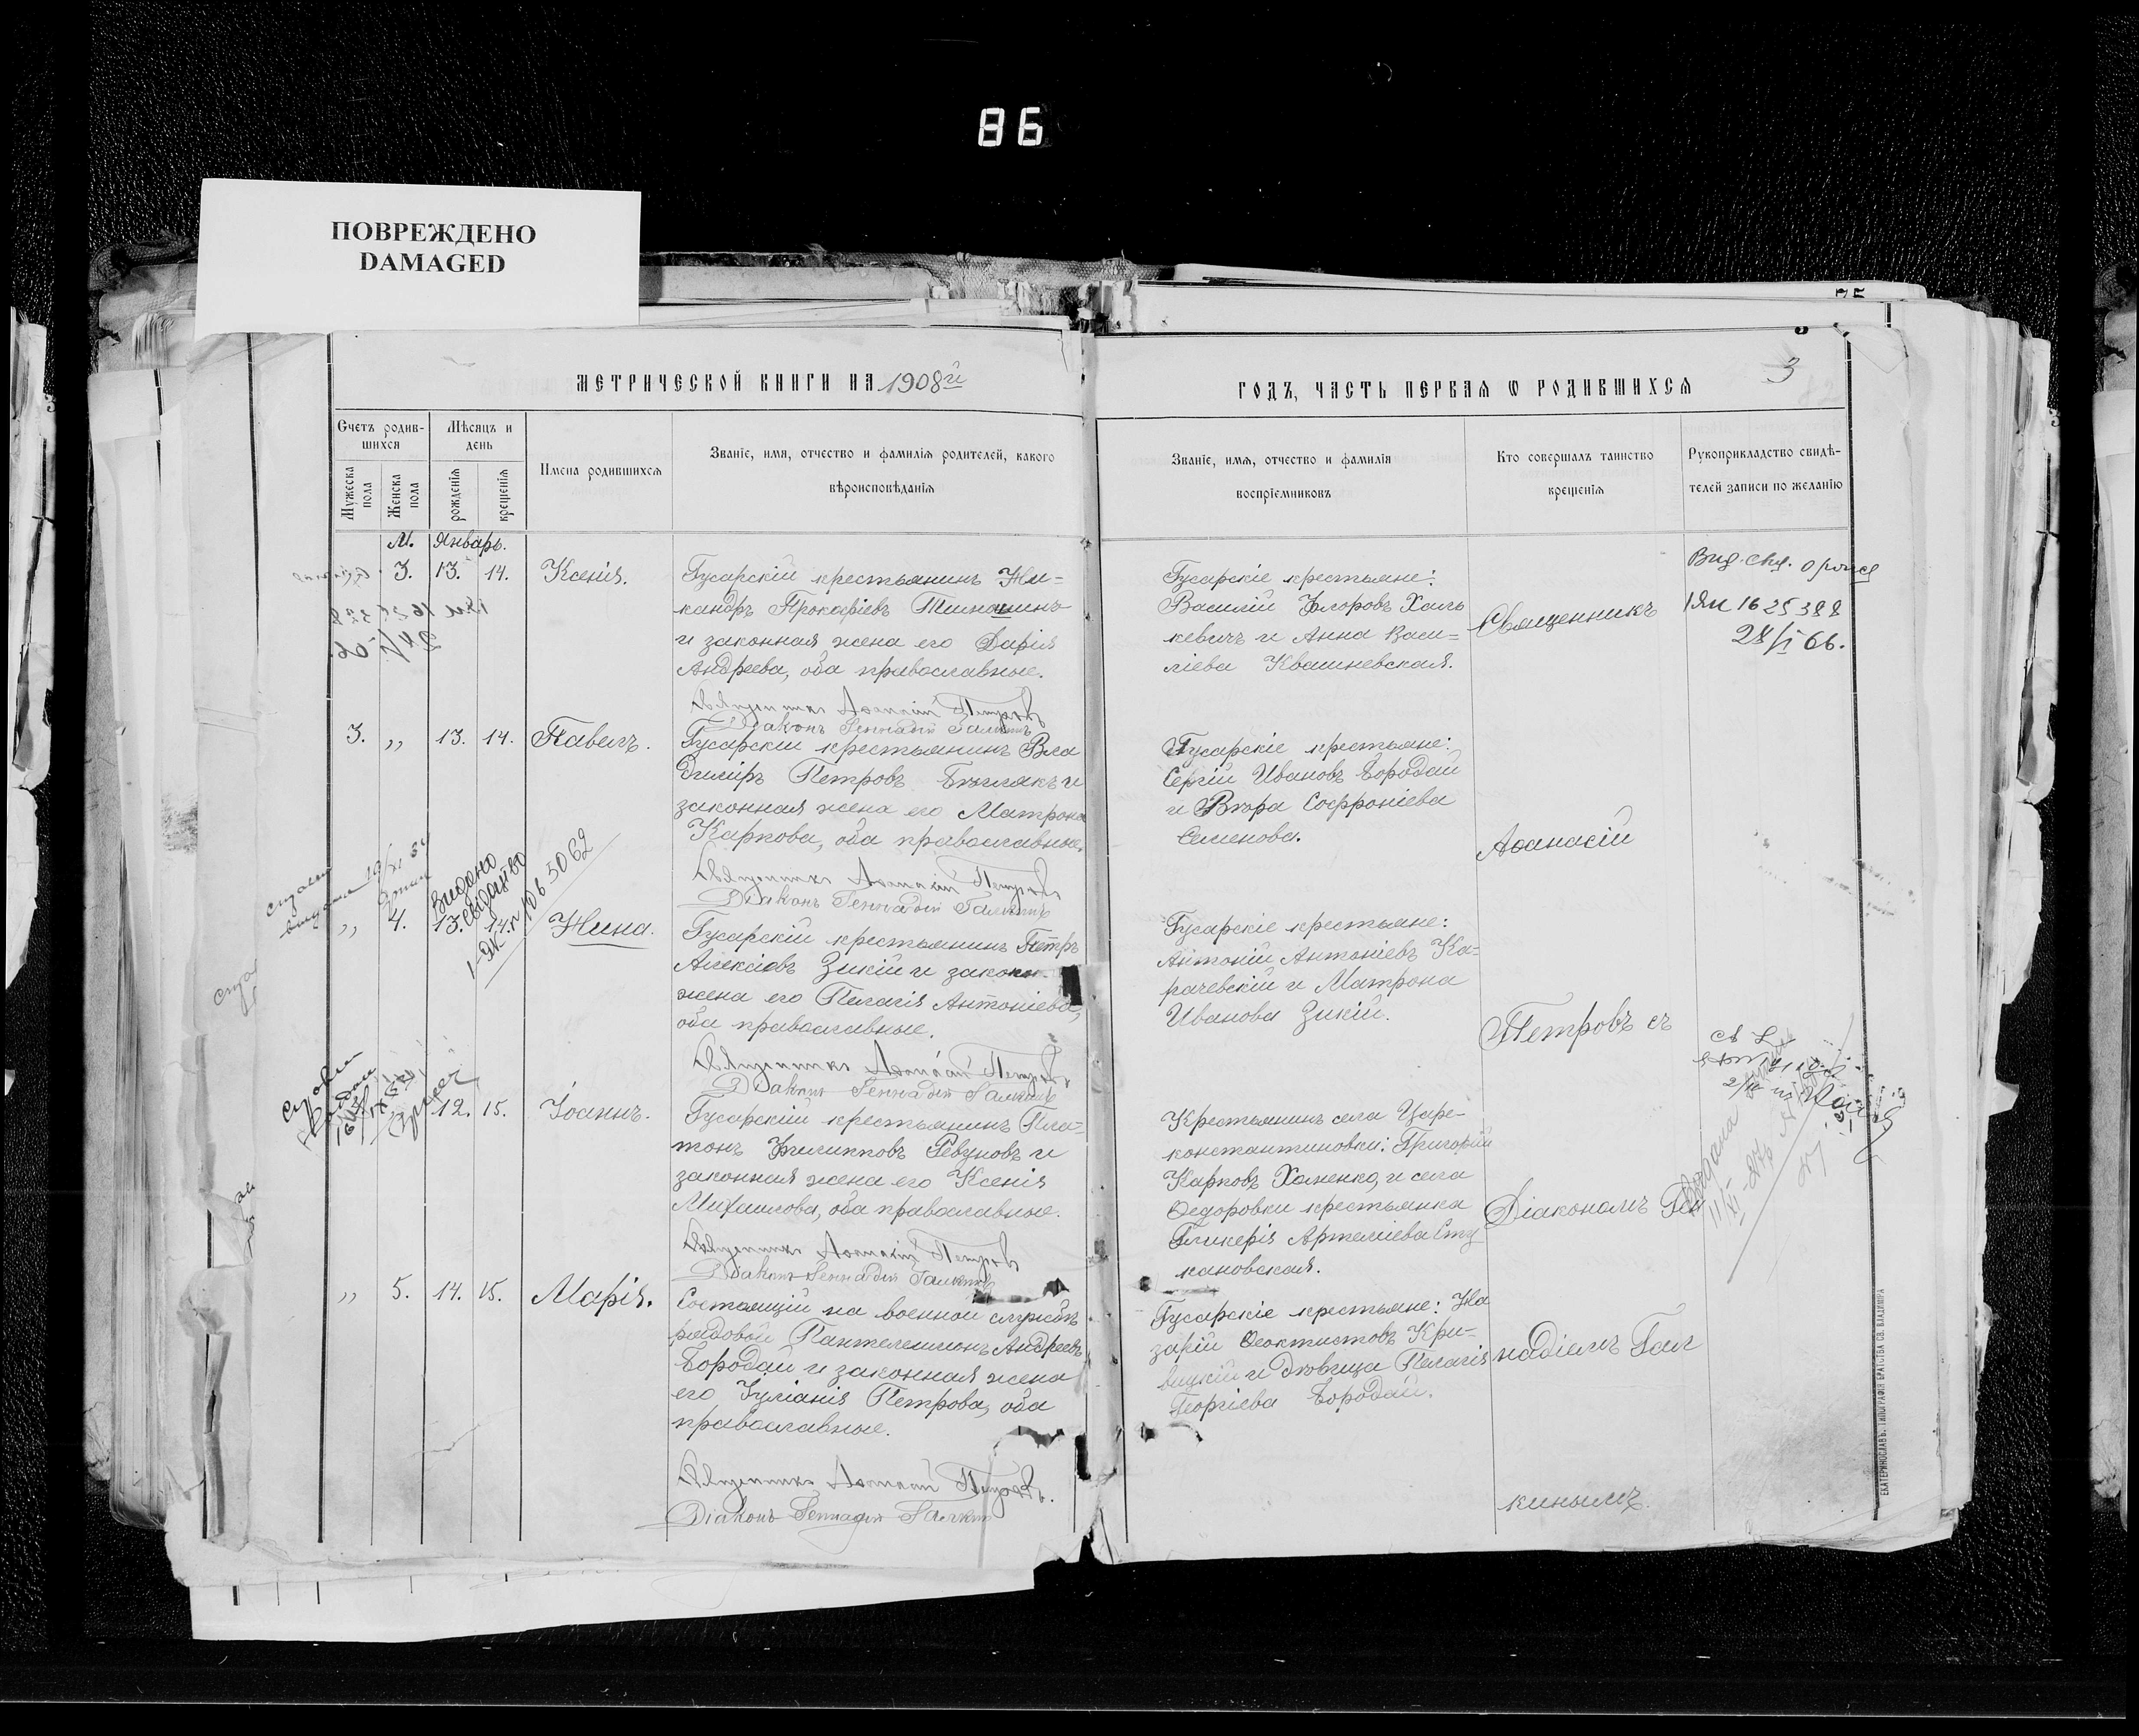 86
ПОВРЕЖДЕНО
DAMAGED
МЕТРИЧЕСКОЙ КНИГИ НА 1908й
ГОДЪ, ЧАСТЬ ПЕРВАЯ Ѡ РОДИВШИХСЯ
3
Счетъ родив-
шихся
Мѣсяцъ и
день
Мужеска
пола
Женска
пола
рожденія
крещенія
Имена родившихся
Званіе, имя, отчество и фамилія родителей, какого
вѣроисповѣданія
Званіе, имя, отчество и фамилія
воспріемниковъ
Кто совершалъ таинство
крещенія
Рукоприкладство свидѣ-
телей записи по желанію
М. Январь.
3. 13. 14. Ксенія.
Гусарскій крестьянинъ Ни-
кандръ Прокофіевъ
и законная жена его Дарія
Андреева, оба православные.
Священникъ Аѳанасій Петровъ
Діаконъ Геннадій Галкинъ
Гусарскіе крестьяне:
Василій Флоровъ Халь
кевичъ и Анна Васи-
ліева Квашневская.
Священникъ
1ЯИ 1625388
28/I 66.
3. „ 13. 14. Павелъ.
Гусарскій крестьянинъ Вла
диміръ Петровъ и
законная жена его Матрона
Карпова, оба православные.
Священникъ Аѳанасій Петровъ
Діаконъ Геннадій Галкинъ
Гусарскіе крестьяне:
Сергій Ивановъ Бородай
и Вѣра Софроніева
Семенова.
Аѳанасій
Видано
свідоцтво
„ 4. 13. 14. Нина.
Гусарскій крестьянинъ Петръ
Алексіевъ Зикій и законн.
жена его Пелагія Антоніева,
оба православные.
Священникъ Аѳанасій Петровъ
Діаконъ Геннадій Галкинъ
Гусарскіе крестьяне:
Антоній Антоніевъ Ка-
рачевскій и Матрона
Иванова Зикій.
Петровъ съ
12. 15. Іоаннъ.
Гусарскій крестьянинъ Пла-
тонъ Филипповъ Ревуновъ и
законная жена его Ксенія
Михаилова, оба православные.
Священникъ Аѳанасій Петровъ
Діаконъ Геннадій Галкинъ
Крестьянинъ села Царе-
константиновки: Григорій
Карповъ Хоменко, и села
Ѳедоровки крестьянка
Гликерія Артеміева Сту
кановская.
Діакономъ Ген
„ 5. 14. 15. Марія.
Состоящій на военной службѣ
рядовой Пантелеимонъ Андреевъ
Бородай и законная жена
его Іуліанія Петрова, оба
православные.
Священникъ Аѳанасій Петровъ.
Діаконъ Геннадій Галкинъ
Гусарскіе крестьяне: На
зарій Ѳеоктистовъ Кри-
вицкій и дѣвица Пелагія
Георгіева Бородай.
надіемъ Гал
кинымъ.
ЕКАТЕРИНОСЛАВЪ. ТИПОГРАФІЯ БРАТСТВА СВ. ВЛАДИМІРА